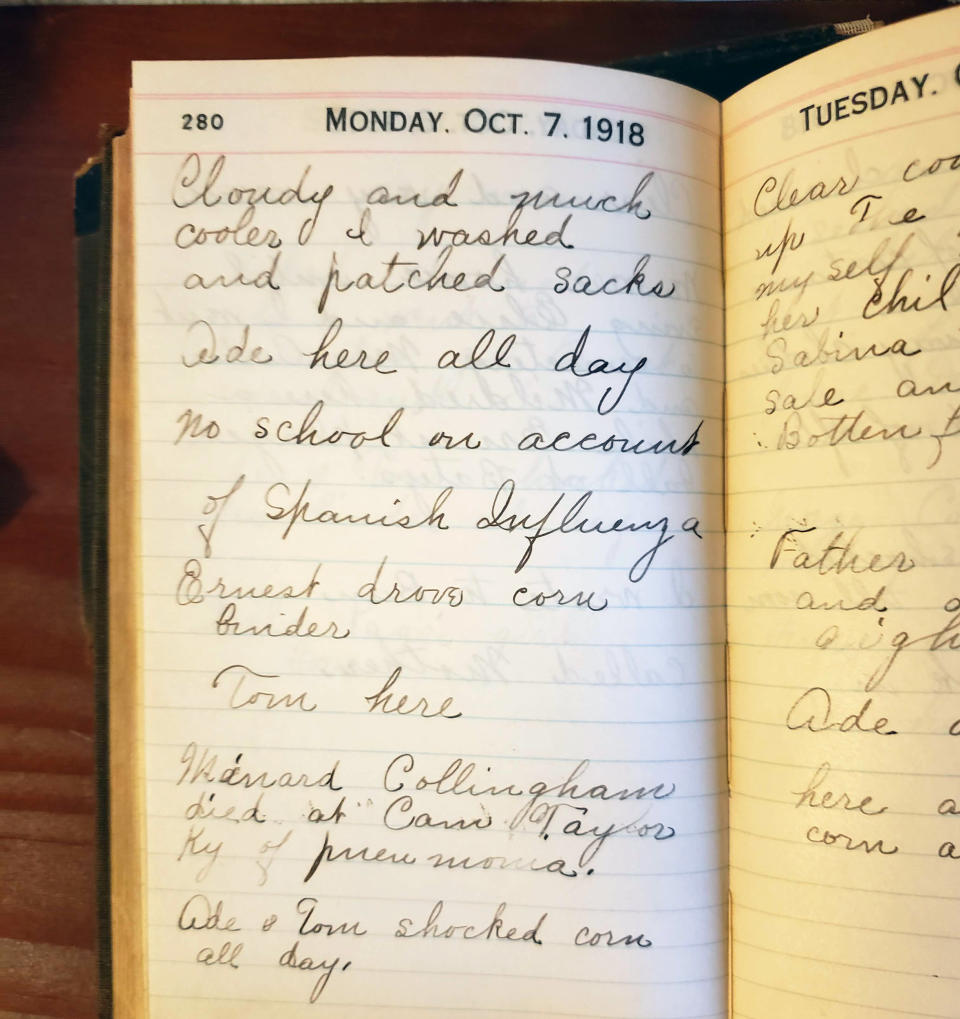 280 MONDAY. OCT. 7. 1918
Cloudy and much
cooler I washed
and patched sacks
Ade here all day
No school on account
of Spanish Influenza
Ernest drove corn
binder
Tom here
Manard Collingham
died at Cam Taylor
Ky of pneumonia.
Ade & Tom shocked corn
all day.
TUESDAY.
Clear
up
my self
her chil
Sabina
sale an
Botten
Father
and
Ade
here a
corn a